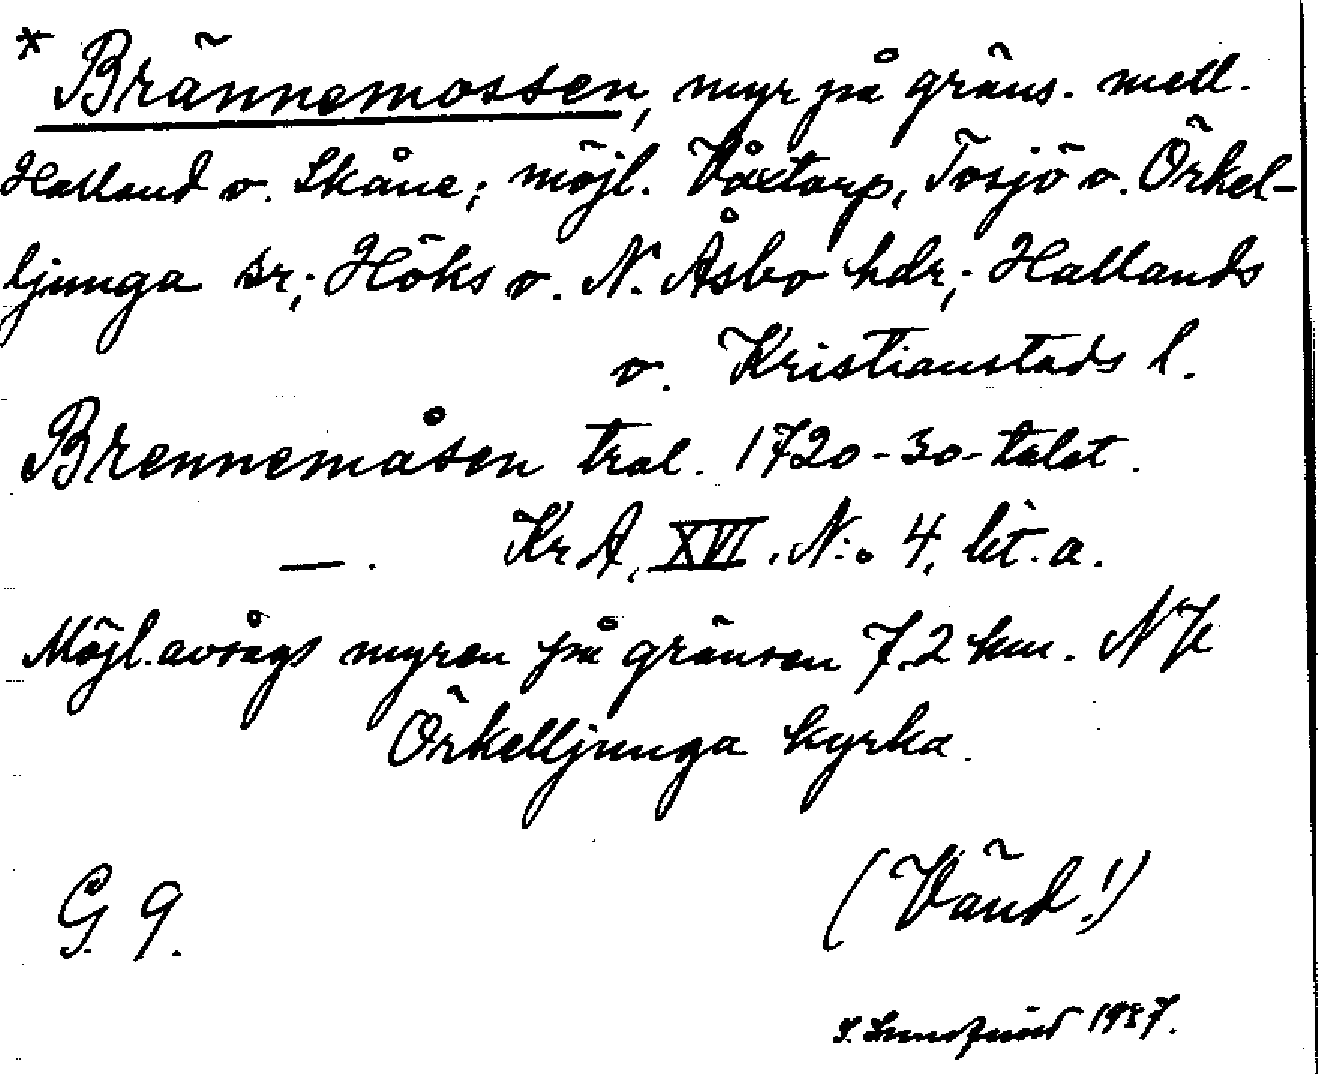 * Brännemossen, myr på gräns. mell.
Halland o. Skåne; möjl. Våxtorp, Tosjö o. Örkel-
ljunga sr; Höks o. N. Åsbo hdr; Hallands
o. Kristianstads l.
Brennemåsen trol. 1720-30-talet.
— . KrA, XVI. N:o 4, lit. a.
Möjl. avsågs myren på gränsen 7,2 km. N
Örkelljunga kyrka.
G. 9. (Vänd!)
1957.